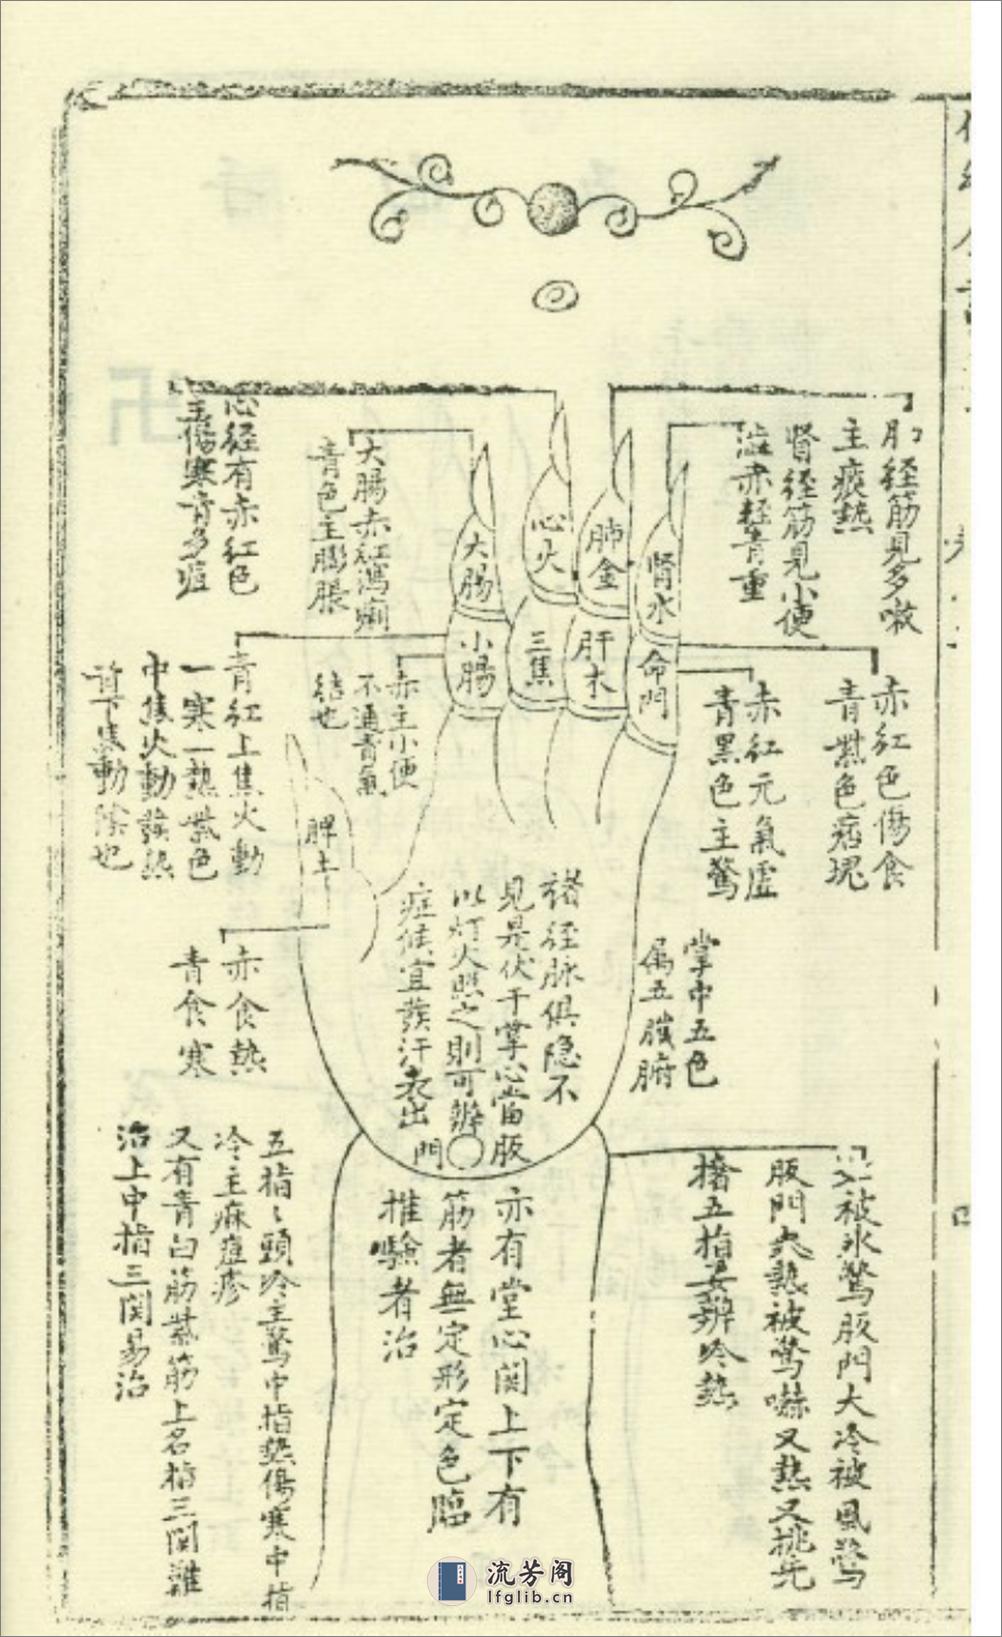 肝经筋見多嗽
主痰熱
腎経筋見小便
澁赤軽青重
心経有赤紅色
主傷寒青多痘
大腸赤紅瀉痢
青色主膨脹
大腸
心火
肺金
腎水
小腸
三焦
肝木
命門
赤紅色傷食
青紫色痞塊
赤紅元氣虛
青黑色主驚
赤主小便
不通青氣
結也
青紅上焦火動
一寒一熱紫色
中焦火動發热
下焦動
也
脾土
赤食熱
青食寒
掌中五色
属五臟腑
諸経脉俱隐不
見是伏于掌心當版
以灯火照之則可辦
症候宜發汗表出
門
被水驚版門大冷被風驚
版門大熱被驚嚇又熱又挑先
揞五指要辨冷熱
亦有堂心関上下有
筋者無定形定色臨
推驗者治
五指〻頭冷主驚中指熱傷寒中指
冷主麻痘疹
又有青白筋紫筋上名指三関難
治上中指三関易治
流芳阁
lfglib.cn